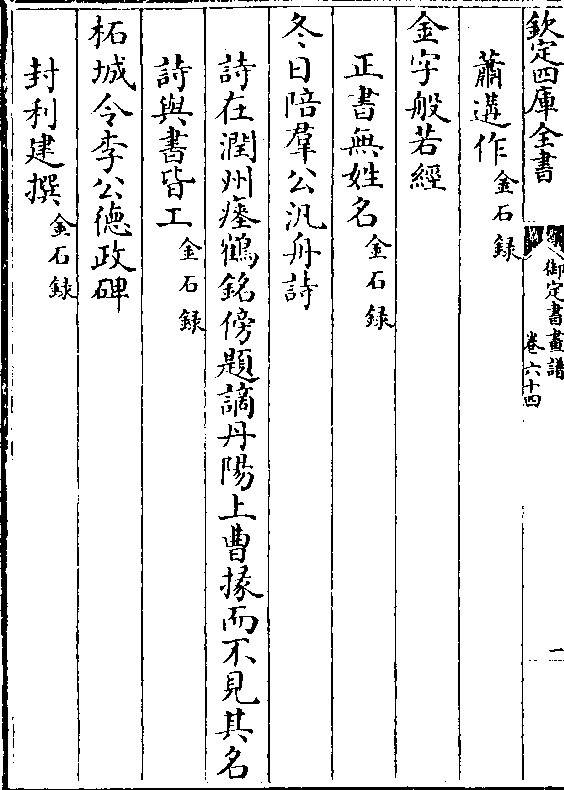 欽定四庫全書
御定書畫譜
卷六十四
一
蕭遘作金石錄
金字般若經
正書無姓名金石錄
冬日陪羣公汎舟詩
詩在潤州瘞鶴銘傍題謫丹陽上曹掾而不見其名
詩與書皆工金石錄
柘城令李公德政碑
封利建撰金石録